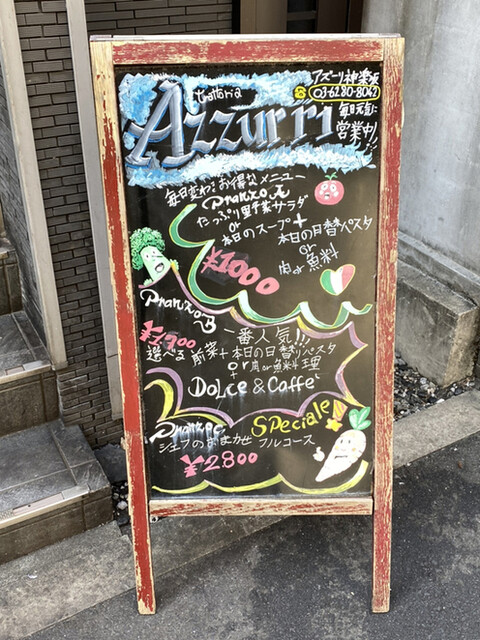 trattoria
Azzurri
アズーリ神楽坂
☎03-6280-8062
毎日元気に
営業中!!
毎日変わるお得なメニュー
Pranzo A
たっぷり野菜サラダ
or
本日のスープ+
本日の日替パスタ
or
肉or魚料
¥1000
Pranzo B
一番人気!!!
選べる前菜+本日の日替りパスタ
or肉or魚料理
+
Dolce & Caffe'
Pranzo C.
Speciale!
シェフのおまかせフルコース
¥2800